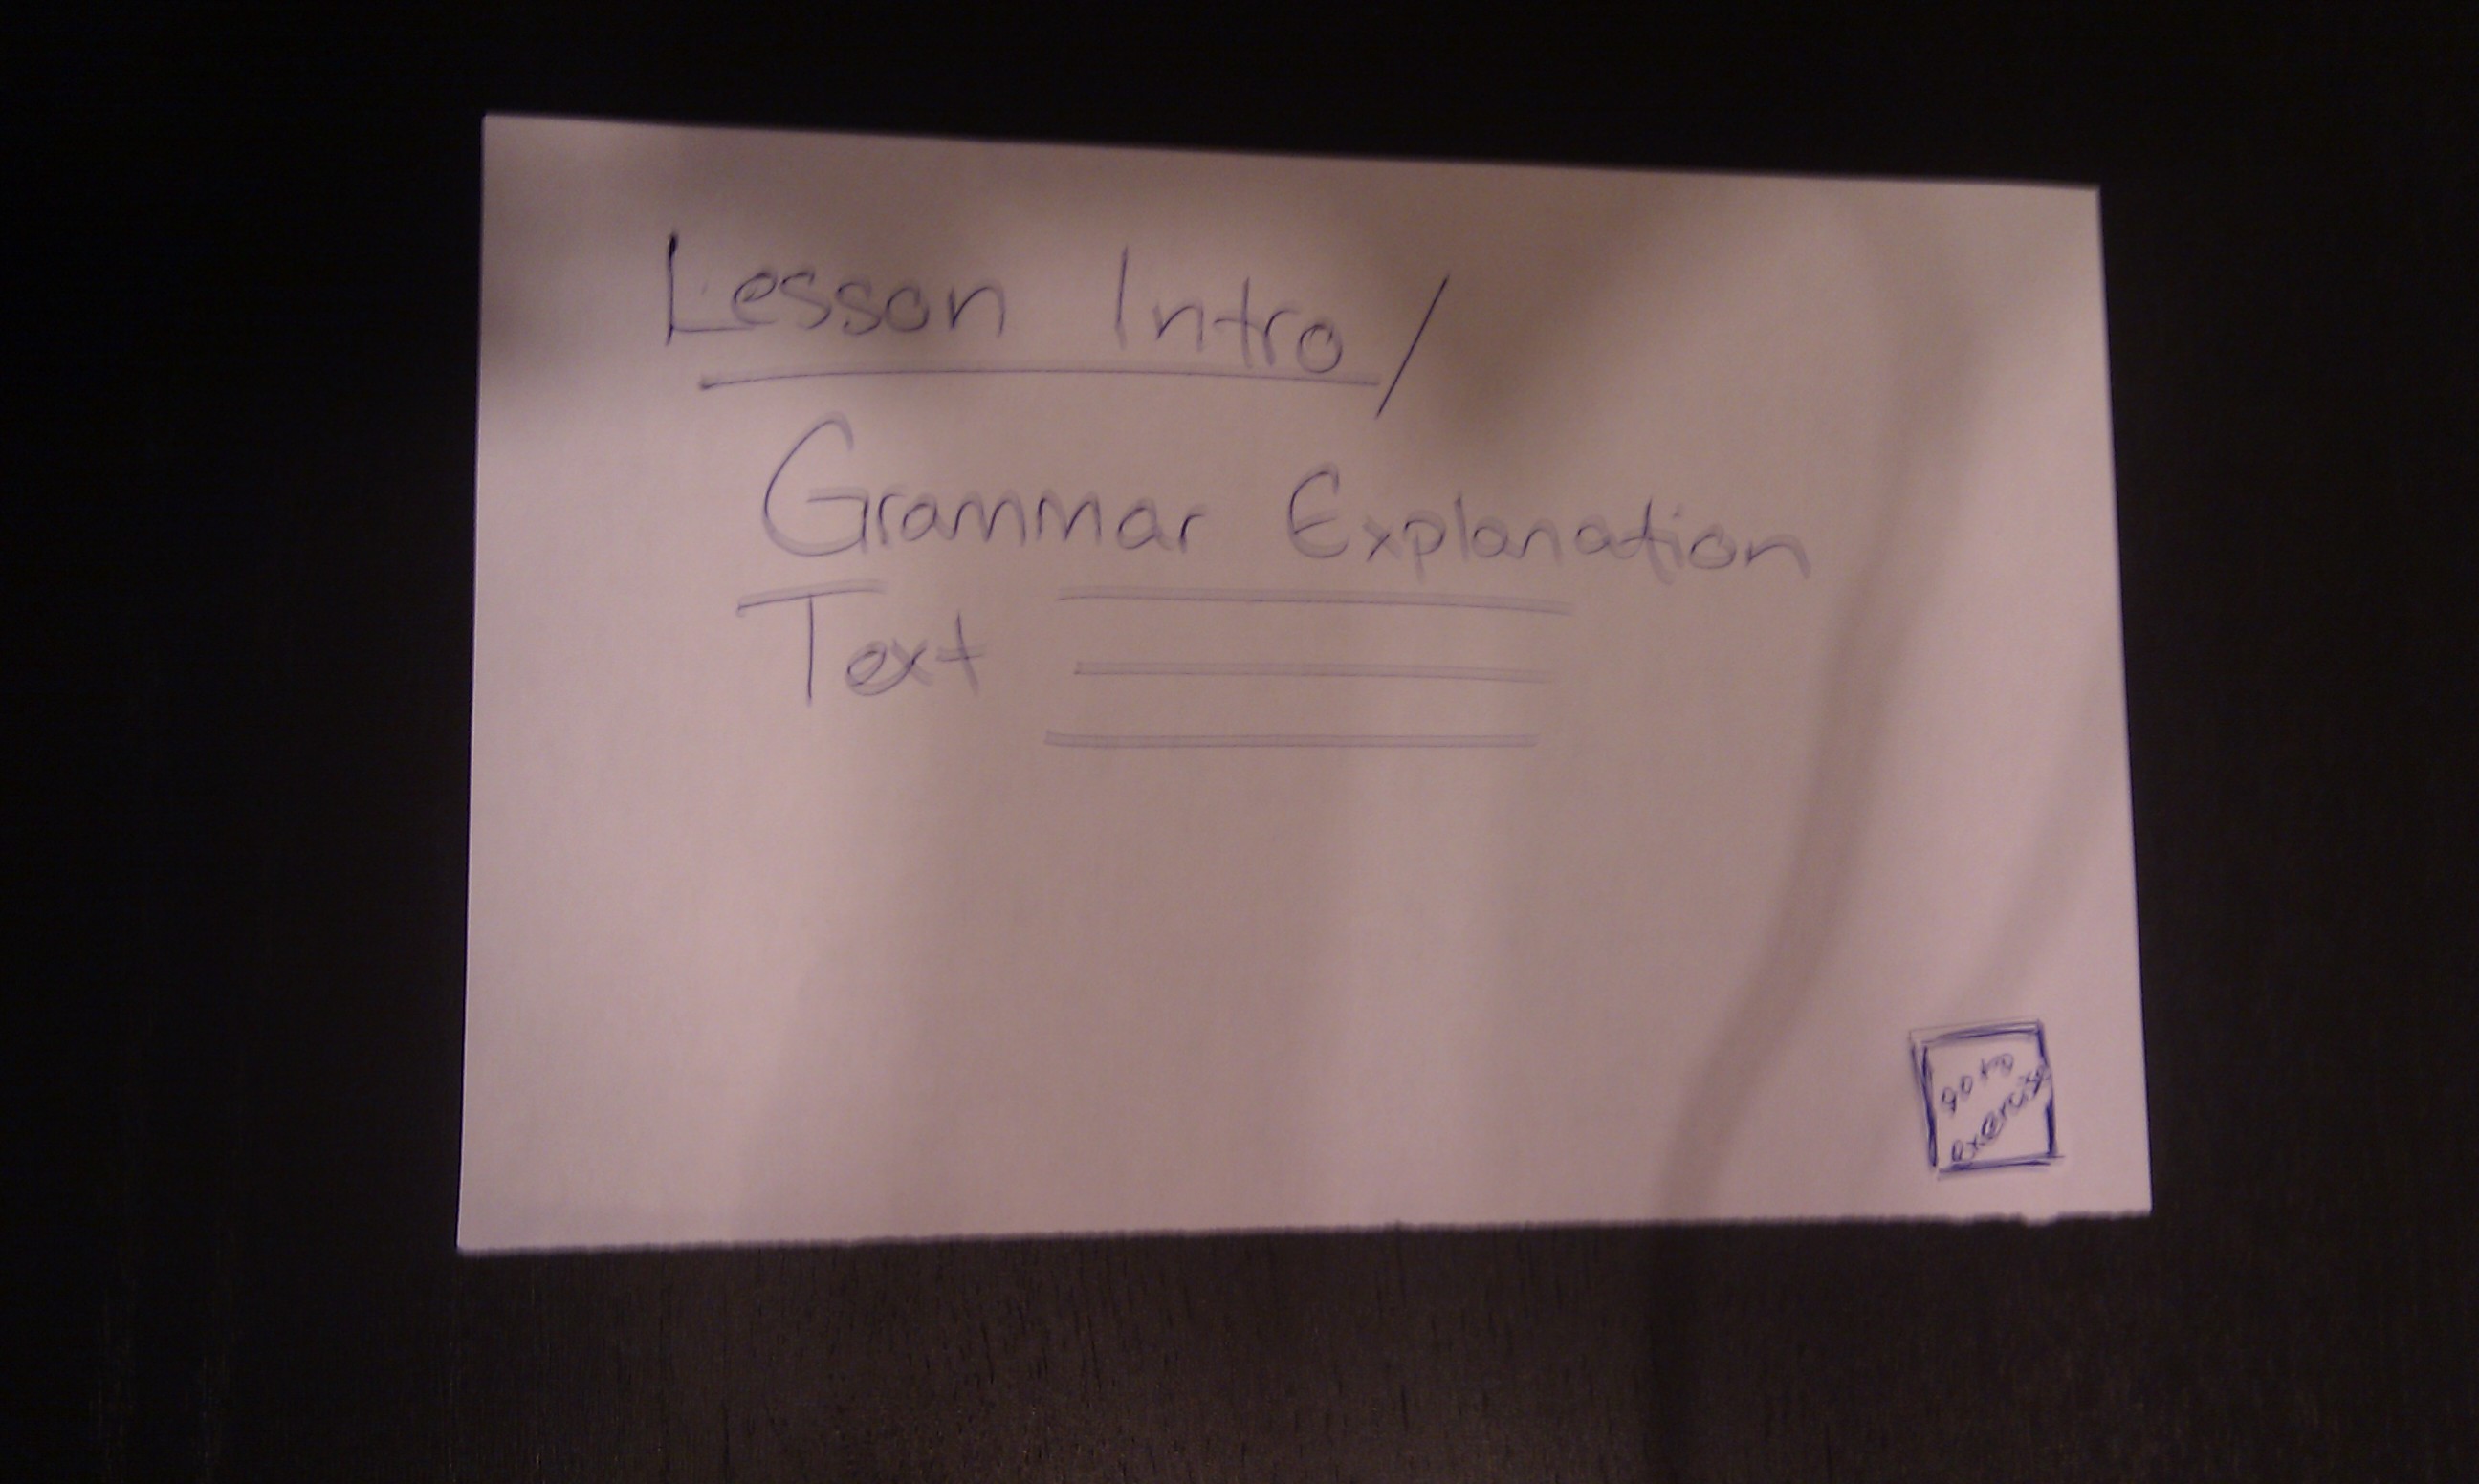 Lesson Intro/
Grammar Explanation
Text
go to
exercise